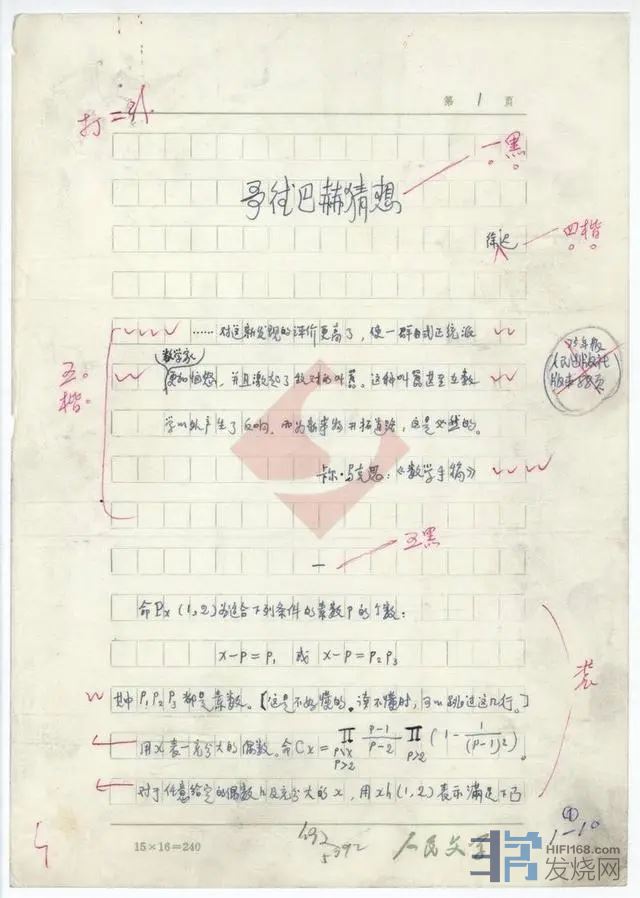 第 1 页
打
一黑
哥德巴赫猜想
徐迟
四楷
……对这新发现的评价更高了，使一群自封正统派
数学家
更加恼怒，并且激起了敌对的叫嚣。这种叫嚣甚至在数
五楷
学以外产生了反响，而为新事物开拓道路，这是必然的。
卡尔·马克思：《数学手稿》
一
五黑
命Px(1,2)为适合下列条件的素数p的个数：
x-p=p₁ 或 x-p=p₂p₃
其中p₁p₂p₃都是素数。【这是不好懂的。读不懂时，可以跳过这几行。】
用x表一充分大的偶数。命Cx = ∏ p|x p>2 (p-1)/(p-2) ∏ p>2 (1 - 1/(p-1)²)
对于任意给定的偶数h及充分大的x，用xh(1,2)表示满足下面
15×16=240
人民文学
①
1-10
HIFI168.com
发烧网